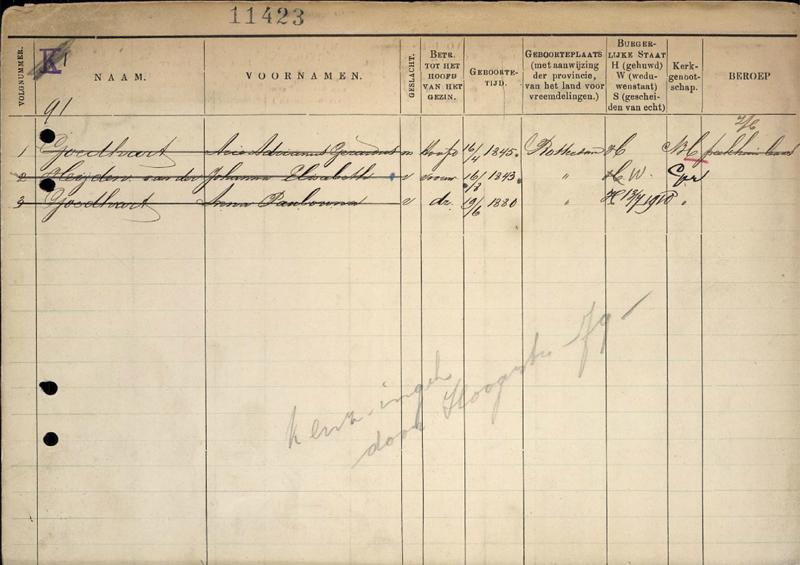 11423
VOLGNUMMER.
K 1
91
NAAM.
VOORNAMEN.
GESLACHT.
BETR. TOT HET HOOFD VAN HET GEZIN.
GEBOORTE-TIJD.
GEBOORTEPLAATS (met aanwijzing der provincie, van het land voor vreemdelingen.)
BURGER-LIJKE STAAT H (gehuwd) W (weduwenstaat) S (gescheiden van echt)
Kerk-genoot-schap.
BEROEP
1 Goedhart Arie Adrianus Gerardus m Hoofd 16/4 1845. Rotterdam H NH
2 Heijden van der Johanna Elisabeth v vrouw 16/3 1843. " H W.
3 Goedhart Anna v dr. 19/6 1880 " H 1910 "
door Hoogstr 79